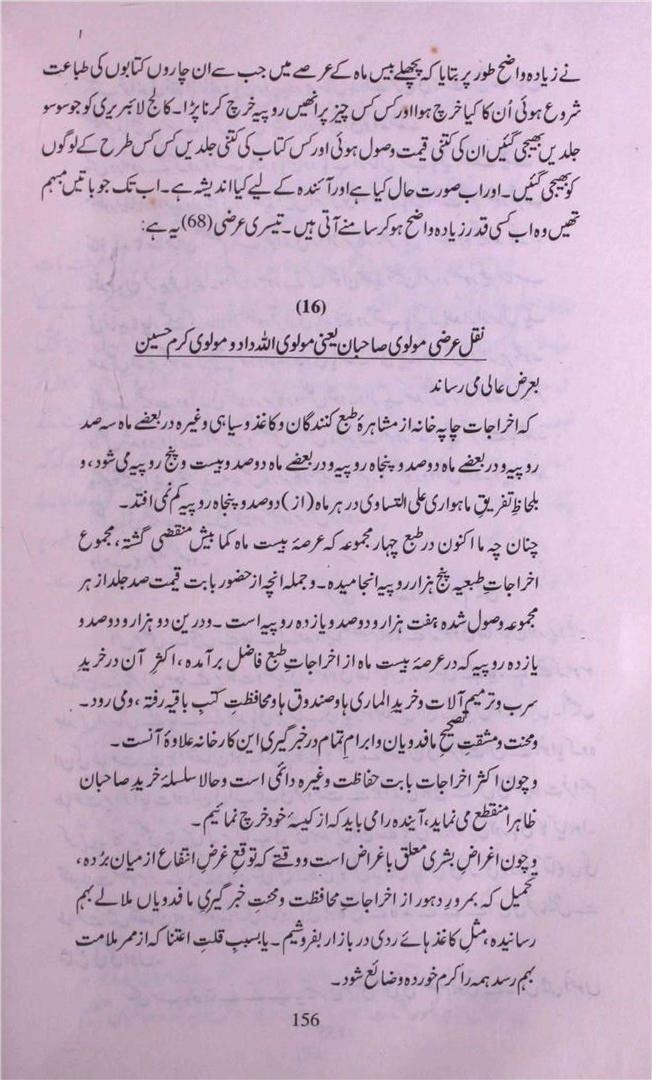 نے زیادہ واضح طور پر بتایا کہ پچھلے بیس ماہ کے عرصے میں جب سے ان چاروں کتابوں کی طباعت
شروع ہوئی اُن کا کیا خرچ ہوا اور کس کس چیز پر انھیں روپیہ خرچ کرنا پڑا۔ کالج لائبریری کو جو سو سو
جلدیں بھیجی گئیں ان کی کتنی قیمت وصول ہوئی اور کس کتاب کی کتنی جلدیں کس کس طرح کے لوگوں
کو بھیجی گئیں۔ اور اب صورت حال کیا ہے اور آئندہ کے لیے کیا اندیشہ ہے۔ اب تک جو باتیں مبہم
تھیں وہ اب کسی قدر زیادہ واضح ہو کر سامنے آتی ہیں۔ تیسری عرضی (68) یہ ہے:
(16)
نقل عرضی مولوی صاحبان یعنی مولوی اللہ داد و مولوی کرم حسین
بعرض عالی می رساند
کہ اخراجات چاپہ خانہ از مشاہرۂ طبع کنندگان و کاغذ و سیاہی وغیرہ در بعضے ماہ سہ صد
روپیہ و در بعضے ماہ دو صد و پنجاہ روپیہ و در بعضے ماہ دو صد و بیست و پنج روپیہ می شود، و
بلحاظِ تفریقِ ماہواری علی التساوی در ہر ماہ (از) دو صد و پنجاہ روپیہ کم نمی افتد۔
چنان چہ ما اکنون در طبع چہار مجموعہ کہ عرصۂ بیست ماہ کما بیش منقضی گشتہ، مجموع
اخراجاتِ طبعیہ پنج ہزار روپیہ انجامیدہ۔ و جملہ انچہ از حضور بابت قیمت صد جلد از ہر
مجموعہ وصول شدہ ہفت ہزار و دو صد و یازدہ روپیہ است۔ و درین دو ہزار و دو صد و
یازدہ روپیہ کہ در عرصۂ بیست ماہ از اخراجاتِ طبع فاضل برآمدہ، اکثرِ آن در خریدِ
سرب و ترمیمِ آلات و خریدِ الماری ہا و صندوق ہا و محافظتِ کتبِ باقیہ رفتہ، و می رود۔
و محنت و مشقتِ تصحیحِ ما فدویان و ابرامِ تمام در خبر گیری این کارخانہ علاوۂ آنست۔
و چون اکثر اخراجات بابت حفاظت وغیرہ دائمی است و حالا سلسلۂ خریدِ صاحبان
ظاہرا منقطع می نماید، آیندہ را می باید کہ از کیسۂ خود خرچ نمائیم۔
و چون اغراضِ بشری معلق باغراض است و وقتے کہ توقع غرضِ انتفاع از میان بُردہ،
تحمیل کہ بمرورِ دہور از اخراجاتِ محافظت و محنتِ خبر گیریِ ما فدویاں ملالے بہم
رسانیدہ، مثلِ کاغذ ہائے ردی در بازار بفروشیم۔ یا بسببِ قلتِ اعتنا کہ از ممر ملامت
بہم رسد ہمہ را کرم خوردہ و ضائع شود۔
156